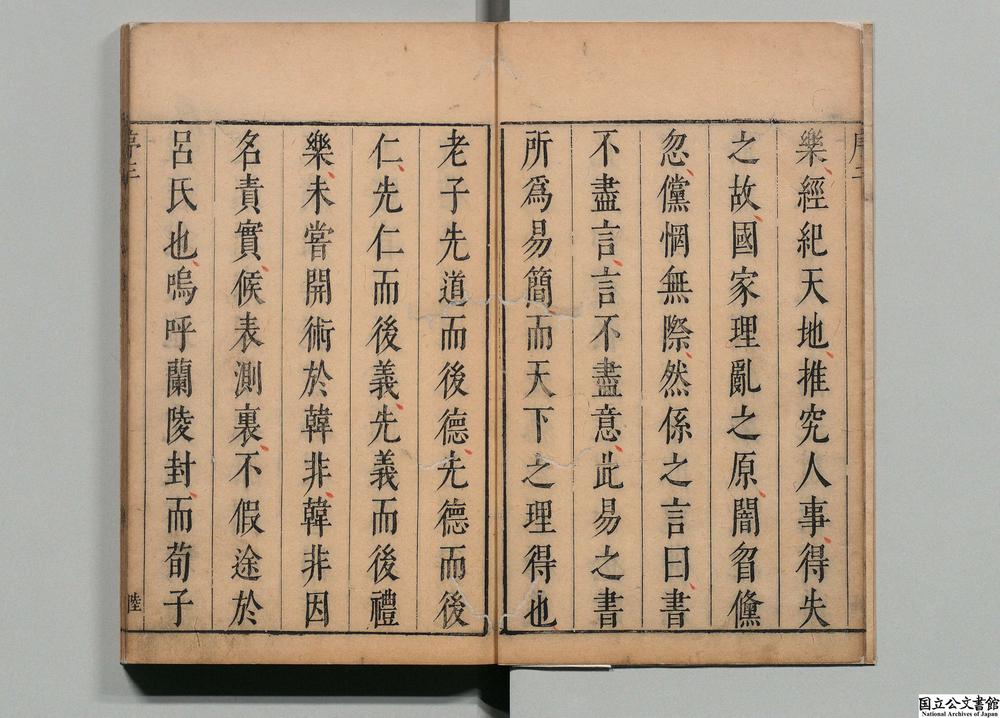 樂經紀天地推究人事得失
之故國家理亂之原闇曶儵
忽儻惘無際然係之言曰書
不盡言言不盡意此易之書
所爲易簡而天下之理得也
老子先道而後德先德而後
仁先仁而後義先義而後禮
樂未嘗開術於韓非韓非因
名責實候表測裏不假途於
呂氏也嗚呼蘭陵封而荀子
序三
陸
国立公文書館
National Archives of Japan